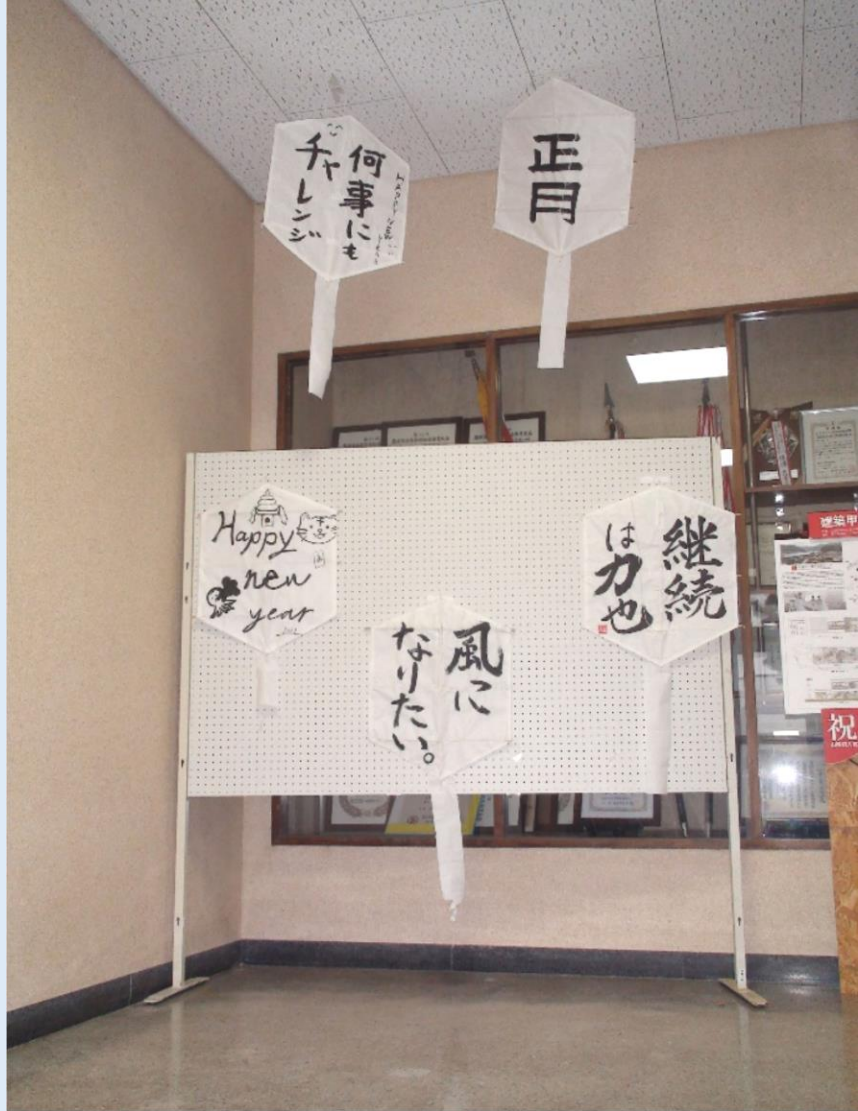 何事にも
チャレンジ
HAPPY NEW
正月
Happy
new
year
風に
なりたい。
継続
は力也
祝